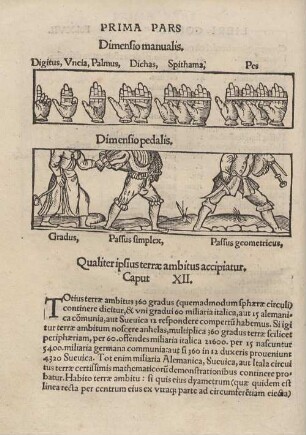 PRIMA PARS
Dimensio manualis,
Digitus, Vncia, Palmus, Dichas, Spithama, Pes
Dimensio pedalis,
Gradus, Passus simplex, Passus geometricus,
Qualiter ipsius terræ ambitus accipiatur,
Caput XII.
TOtius terræ ambitus 360 gradus (quemadmodum sphæræ circuli)
continere dicitur, & vni gradui 60 miliaria italica, aut 15 alemani
ca cōmunia, aut Sueuica 12 respondere compertū habemus. Si igi
tur terræ ambitum noscere anhelas, multiplica 360 gradus terræ scilicet
periphæriam, per 60. ostendes miliaria italica 21600. per 15 nascuntur
5400. miliaria germana communia: aut si 360 in 12 duxeris proueniunt
4320 Sueuica. Tot enim miliaria Alemanica, Sueuica, aut Itala circui
tus terræ certissimis mathematicorū demonstrationibus continere pro
batur. Habito terræ ambitu: si quis eius dyametrum (quæ quidem est
linea recta per centrum eius ex vtraq; parte ad circumferētiam